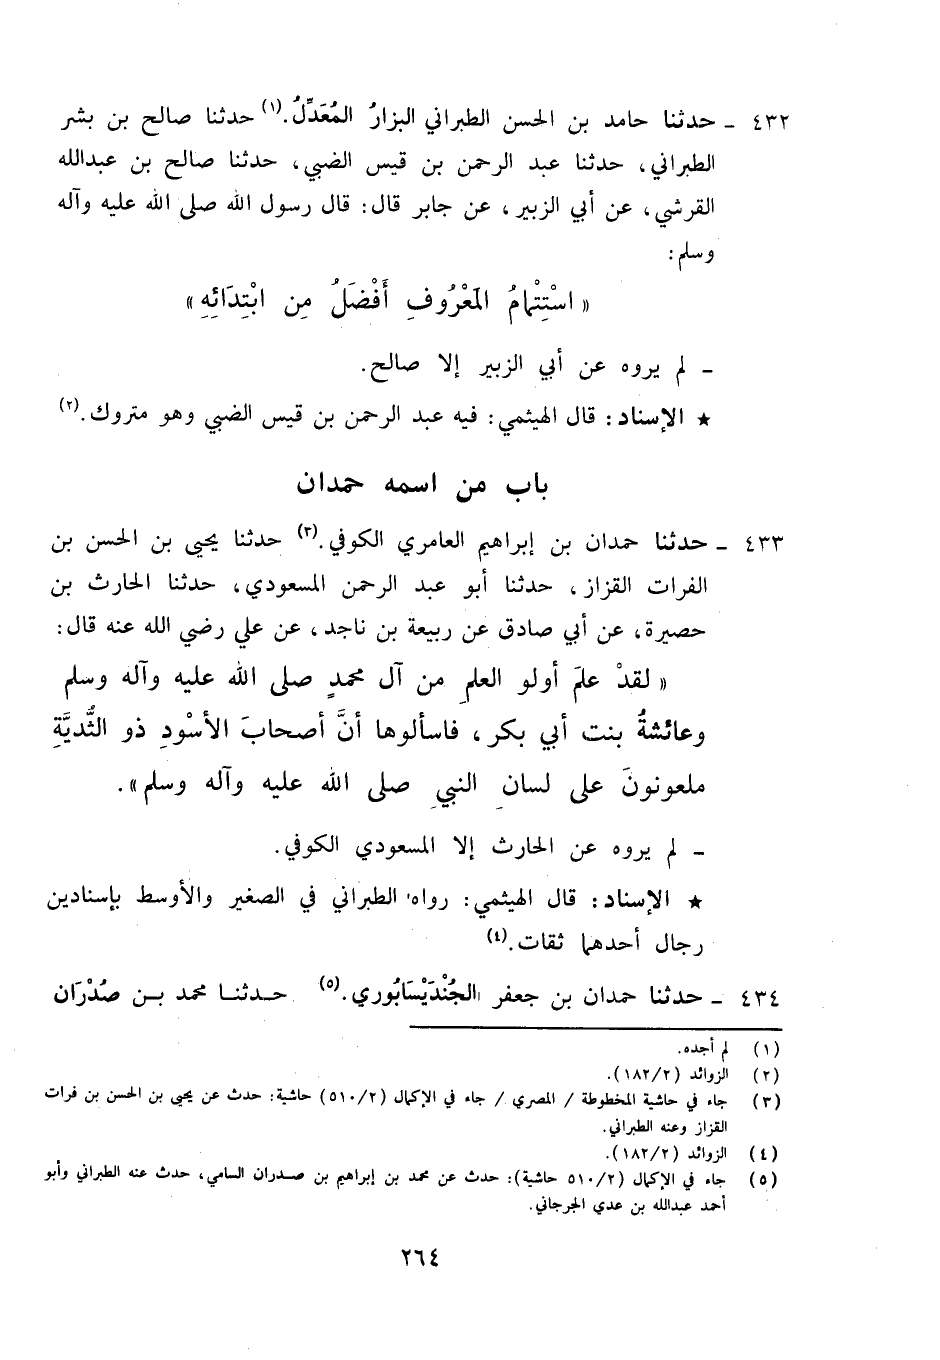 ٤٣٢ - حدثنا حامد بن الحسن الطبراني البزارُ المُعَدِّلُ.(١) حدثنا صالح بن بشر
الطبراني، حدثنا عبد الرحمن بن قيس الضبي، حدثنا صالح بن عبدالله
القرشي، عن أبي الزبير، عن جابر قال: قال رسول الله صلى الله عليه وآله
وسلم:
« اسْتِتْمامُ المَعْرُوفِ أَفْضَلُ مِن ابْتِدَائِهِ »
- لم يروه عن أبي الزبير إلا صالح.
★ الإسناد: قال الهيثمي: فيه عبد الرحمن بن قيس الضبي وهو متروك.(٢)
باب من اسمه حمدان
٤٣٣ - حدثنا حمدان بن إبراهيم العامري الكوفي.(٣) حدثنا يحيى بن الحسن بن
الفرات القزاز، حدثنا أبو عبد الرحمن المسعودي، حدثنا الحارث بن
حصيرة، عن أبي صادق عن ربيعة بن ناجد، عن علي رضي الله عنه قال:
« لقدْ علمَ أولو العلمِ من آل محمدٍ صلى الله عليه وآله وسلم
وعائشةُ بنت أبي بكر، فاسألوها أنَّ أصحابَ الأسْودِ ذو الثُّديَّةِ
ملعونونَ على لسانِ النبيِ صلى الله عليه وآله وسلم ».
- لم يروه عن الحارث إلا المسعودي الكوفي.
★ الإسناد: قال الهيثمي: رواه الطبراني في الصغير والأوسط بإسنادين
رجال أحدهما ثقات.(٤)
٤٣٤ - حدثنا حمدان بن جعفر الجُنْدَيْسَابُوري.(٥) حدثنا محمد بن صُدْرَان
(١) لم أجده.
(٢) الزوائد (١٨٢/٢).
(٣) جاء في حاشية المخطوطة / المصري / جاء في الإكمال (٥١٠/٢) حاشية: حدث عن يحيى بن الحسن بن فرات
القزاز وعنه الطبراني.
(٤) الزوائد (١٨٢/٢).
(٥) جاء في الإكمال (٥١٠/٢ حاشية): حدث عن محمد بن إبراهيم بن صدران السامي، حدث عنه الطبراني وأبو
أحمد عبدالله بن عدي الجرجاني.
٢٦٤